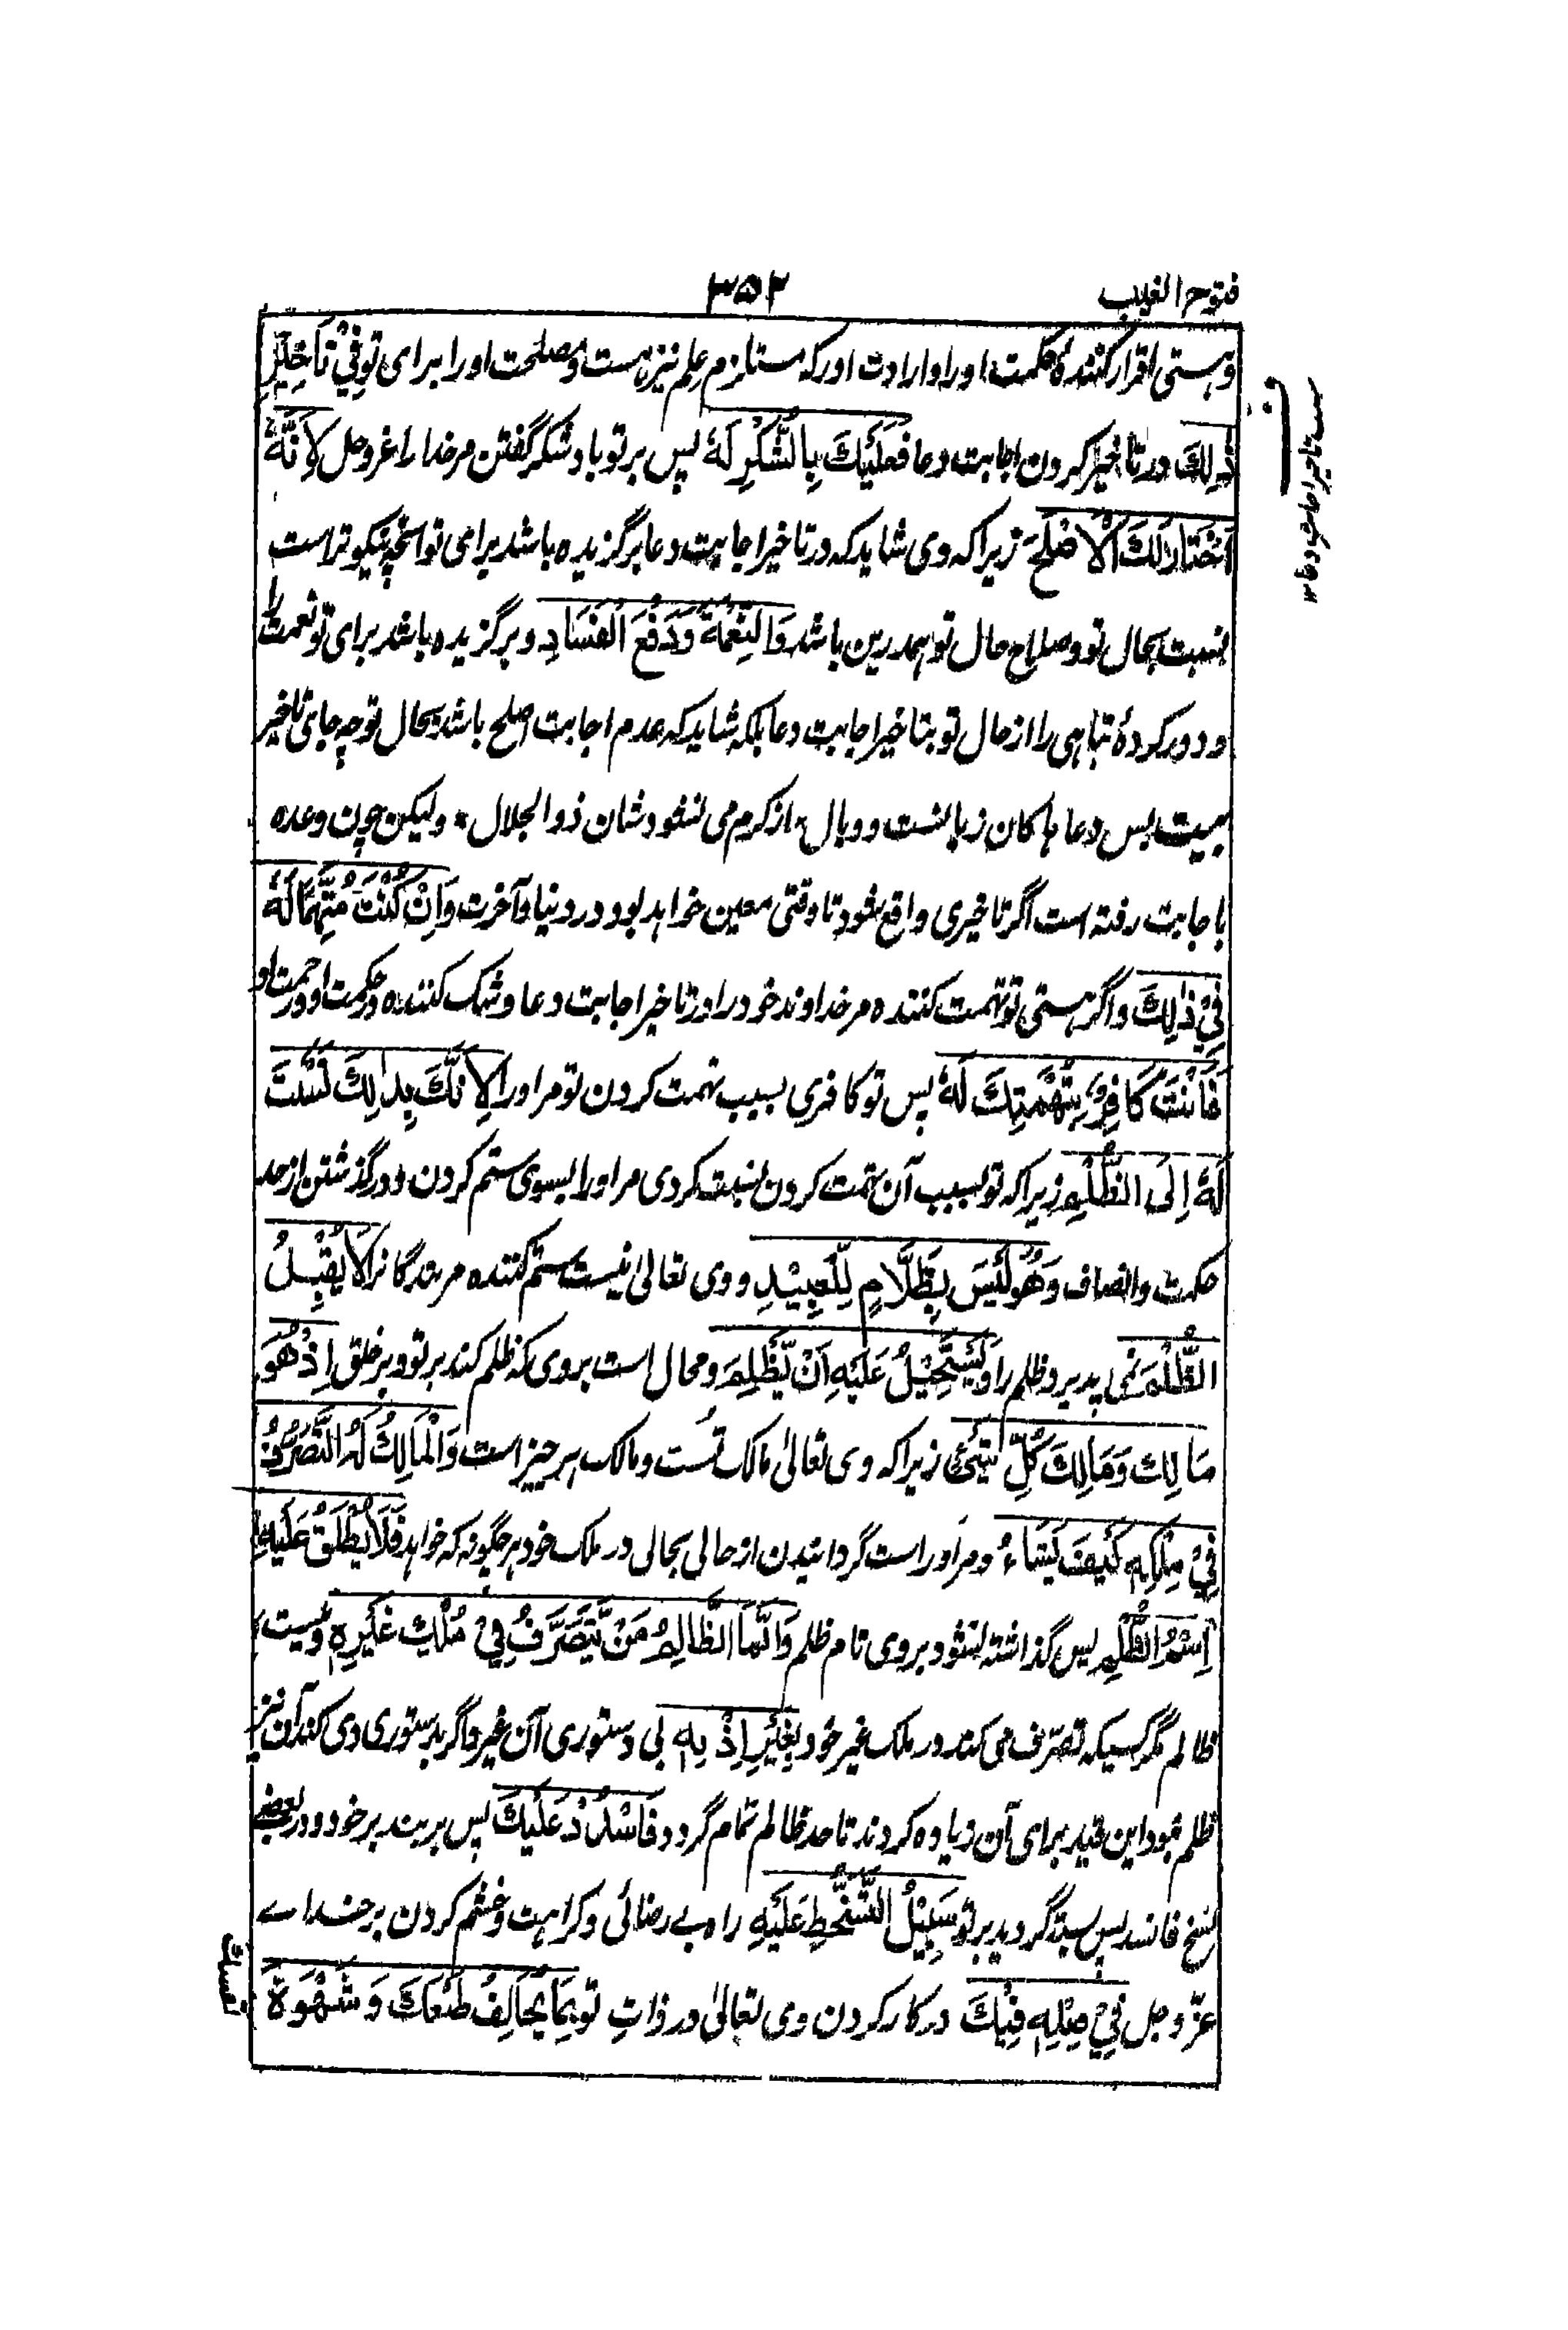 فتوح الغیب
۳۵۲
وہستی اقرار کنندۂ حکمت اورا و ارادت اور کہ مستلزم علم نیز ہست و مصلحت اورا برای تو فِيْ تَاخِيْرِ
ذٰلِكَ در تاخیر کردن اجابت دعا فَعَلَيْكَ بِالشُّكْرِ لَهٗ پس بر تو باد شکر گفتن مر خدا را عز وجل لِاَنَّهٗ
اِخْتَارَ لَكَ الْاَصْلَحَ زیرا کہ وی شاید کہ در تاخیر اجابت دعا برگزیدہ باشد برای تو انچہ نیکوتر است
بنسبت بحال تو وصلاح حال تو ہمدرین باشد وَالنِّعْمَةَ وَدَفْعَ الْفَسَادِ و برگزیدہ باشد برای تو نعمت را
و دور کردۂ تباہی را از حال تو بتاخیر اجابت دعا بلکہ شاید کہ عدم اجابت اصلح باشد بحال تو چہ جای تاخیر
بیت بس دعاہا کان زیانست و وبال * از کرم می نشنود شان ذوالجلال * ولیکن چون وعدہ
باجابت رفتہ است اگر تاخیری واقع شود تا وقتی معین خواہد بود در دنیا و آخرت وَاِنْ كُنْتَ مُتَّهِمًا لَهٗ
فِيْ ذٰلِكَ و اگر ہستی تو تہمت کنندہ مر خداوند خود را در تاخیر اجابت دعا و شک کنندہ در حکمت او و رحمت او
فَاَنْتَ كَافِرٌ بِتُهْمَتِكَ لَهٗ پس تو کافری بسبب تہمت کردن تو مر اورا لِاَنَّكَ بِذٰلِكَ نَسَبْتَ
لَهٗ اِلَى الظُّلْمِ زیرا کہ تو بسبب آن تہمت کردن نسبت کردی مر اورا بسوی ستم کردن و در گذشتن از حد
حکمت و انصاف وَهُوَ لَيْسَ بِظَلَّامٍ لِّلْعَبِيْدِ و وی تعالیٰ نیست ستم کنندہ مر بندگانرا لَا يَقْبَلُ
الظُّلْمَ نمی پذیرد ظلم را وَيَسْتَحِيْلُ عَلَيْهِ اَنْ يَّظْلِمَ و محال است بروی کہ ظلم کند بر تو و بر خلق اِذْ هُوَ
مَالِكُ وَمَالِكَ كُلِّ شَيْئٍ زیرا کہ وی تعالیٰ مالک تست و مالک ہر چیز است وَالْمَالِكُ لَهُ التَّصَرُّفُ
فِيْ مِلْكِهٖ كَيْفَ يَشَاءُ و مر اوراست گردانیدن از حالی بحالی در ملک خود ہر چگونہ کہ خواہد فَلَا يُطْلَقُ عَلَيْهِ
اِسْمُ الظُّلْمِ پس گذاشتہ نشود بروی نام ظلم وَاِنَّمَا الظَّالِمُ مَنْ يَّتَصَرَّفُ فِيْ مُلْكِ غَيْرِهٖ و نیست
ظالم مگر کسیکہ تصرف می کند در ملک غیر خود بِغَيْرِ اِذْنِهٖ بی دستوری آن غیر و اگر بدستوری وی کند آن نیز
ظلم نبود این قید برای آن زیادہ کردند تا حد ظالم تمام گردد فَاشْدُدْ عَلَيْكَ پس بر بند بر خود و در بعضے
نسخ فانسد پس بستہ گردید بر تو سَبِيْلُ السَّخَطِ عَلَيْهِ راہ بے رضائی و کراہت و خشم کردن بر خداے
عزّ و جل فِيْ فِعْلِهٖ فِيْكَ در کار کردن وی تعالیٰ در ذاتِ تو بِمَا يُخَالِفُ طَبْعَكَ وَشَهْوَةَ